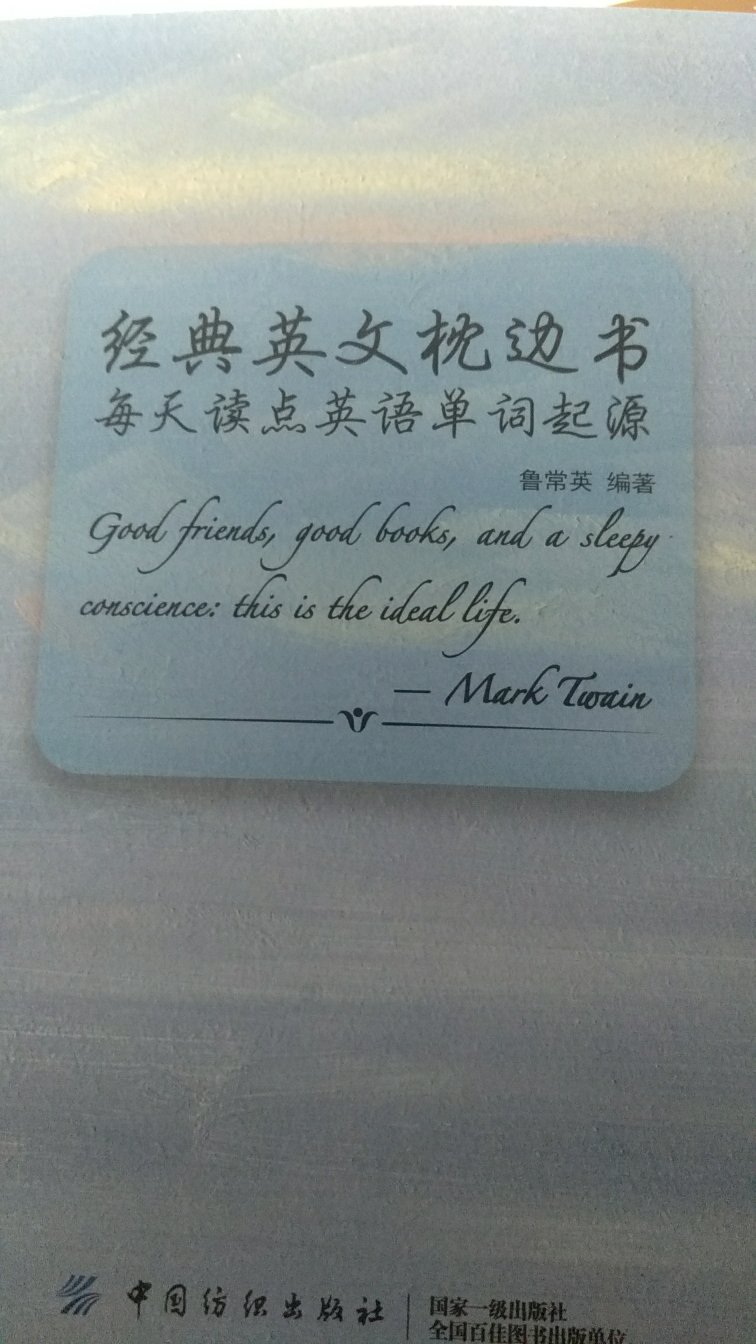 经典英文枕边书
每天读点英语单词起源
鲁常英 编著
Good friends, good books, and a sleepy
conscience: this is the ideal life.
— Mark Twain
中国纺织出版社
国家一级出版社
全国百佳图书出版单位